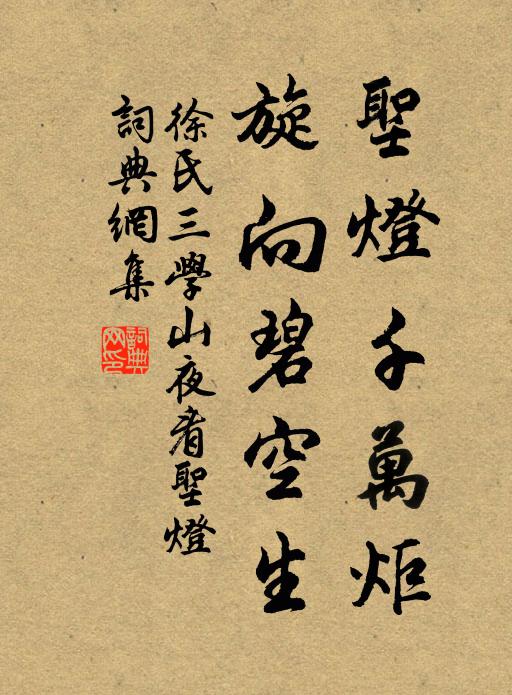 聖燈千萬炬
旋向碧空生
徐氏三學山夜看聖燈
詞典網集
詞典
网印